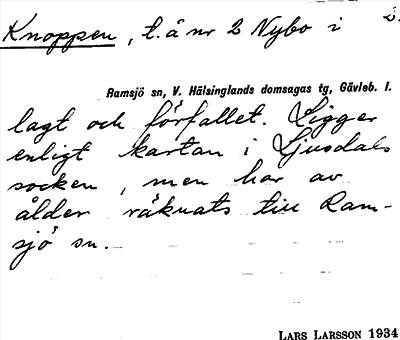 Knoppen, t. å nr 2 Nybo i
Ramsjö sn, V. Hälsinglands domsagas tg, Gävleb. l.
lagt och förfallet. Ligger
enligt kartan i Ljusdals
socken, men har av
ålder räknats till Ram-
sjö sn.
LARS LARSSON 1934